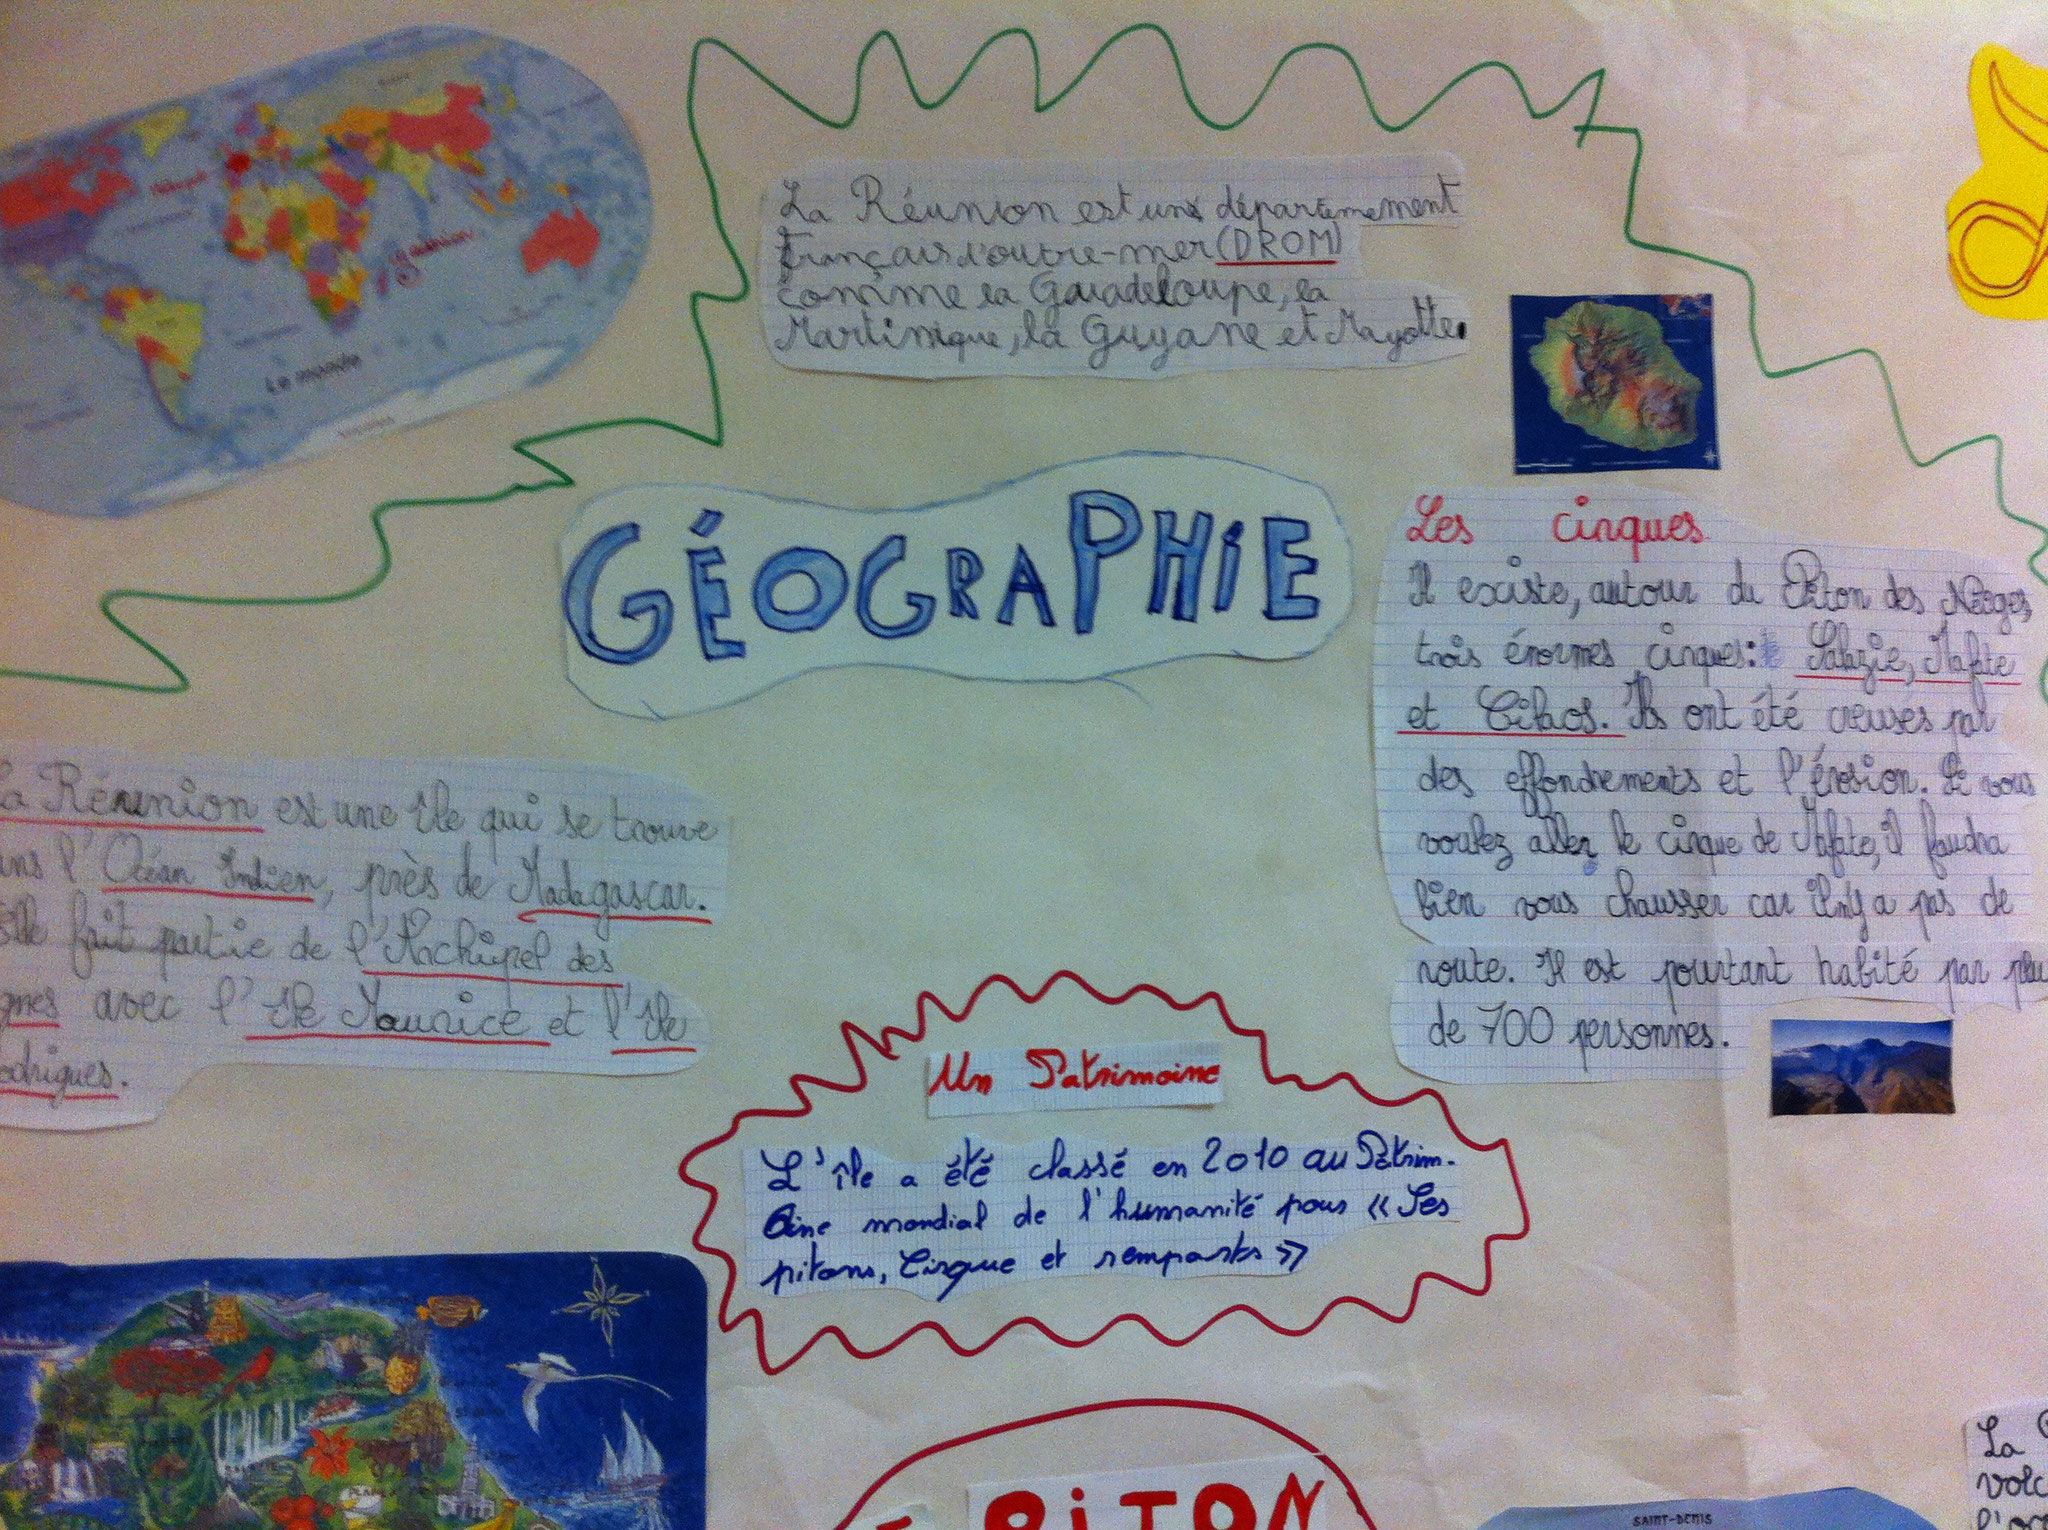 La Réunion est une département
français d'outre-mer (DROM)
comme la Guadeloupe, la
Martinique, la Guyane et Mayotte.
GÉOGRAPHiE
Les cirques
Il existe, autour du Piton des Neiges,
trois énormes cirques: Salazie, Mafate
et Cilaos. Ils ont été creuses par
des effondrements et l'érosion. Si vous
voulez aller le cirque de Mafate, il faudra
bien vous chausser car il n'y a pas de
route. Il est pourtant habité par plu
de 700 personnes.
La Réunion est une île qui se trouve
ans l'Océan Indien, près de Madagascar.
Elle fait partie de l'Archipel des
gnes avec l'île Maurice et l'île
odrigues.
Un Patrimoine
L'île a été classé en 2010 au Patrim-
oine mondial de l'humanité pour « Ses
pitons, Cirque et remparts »
PiTON
SAINT-DENIS
La
volc
l'oc
Le monde